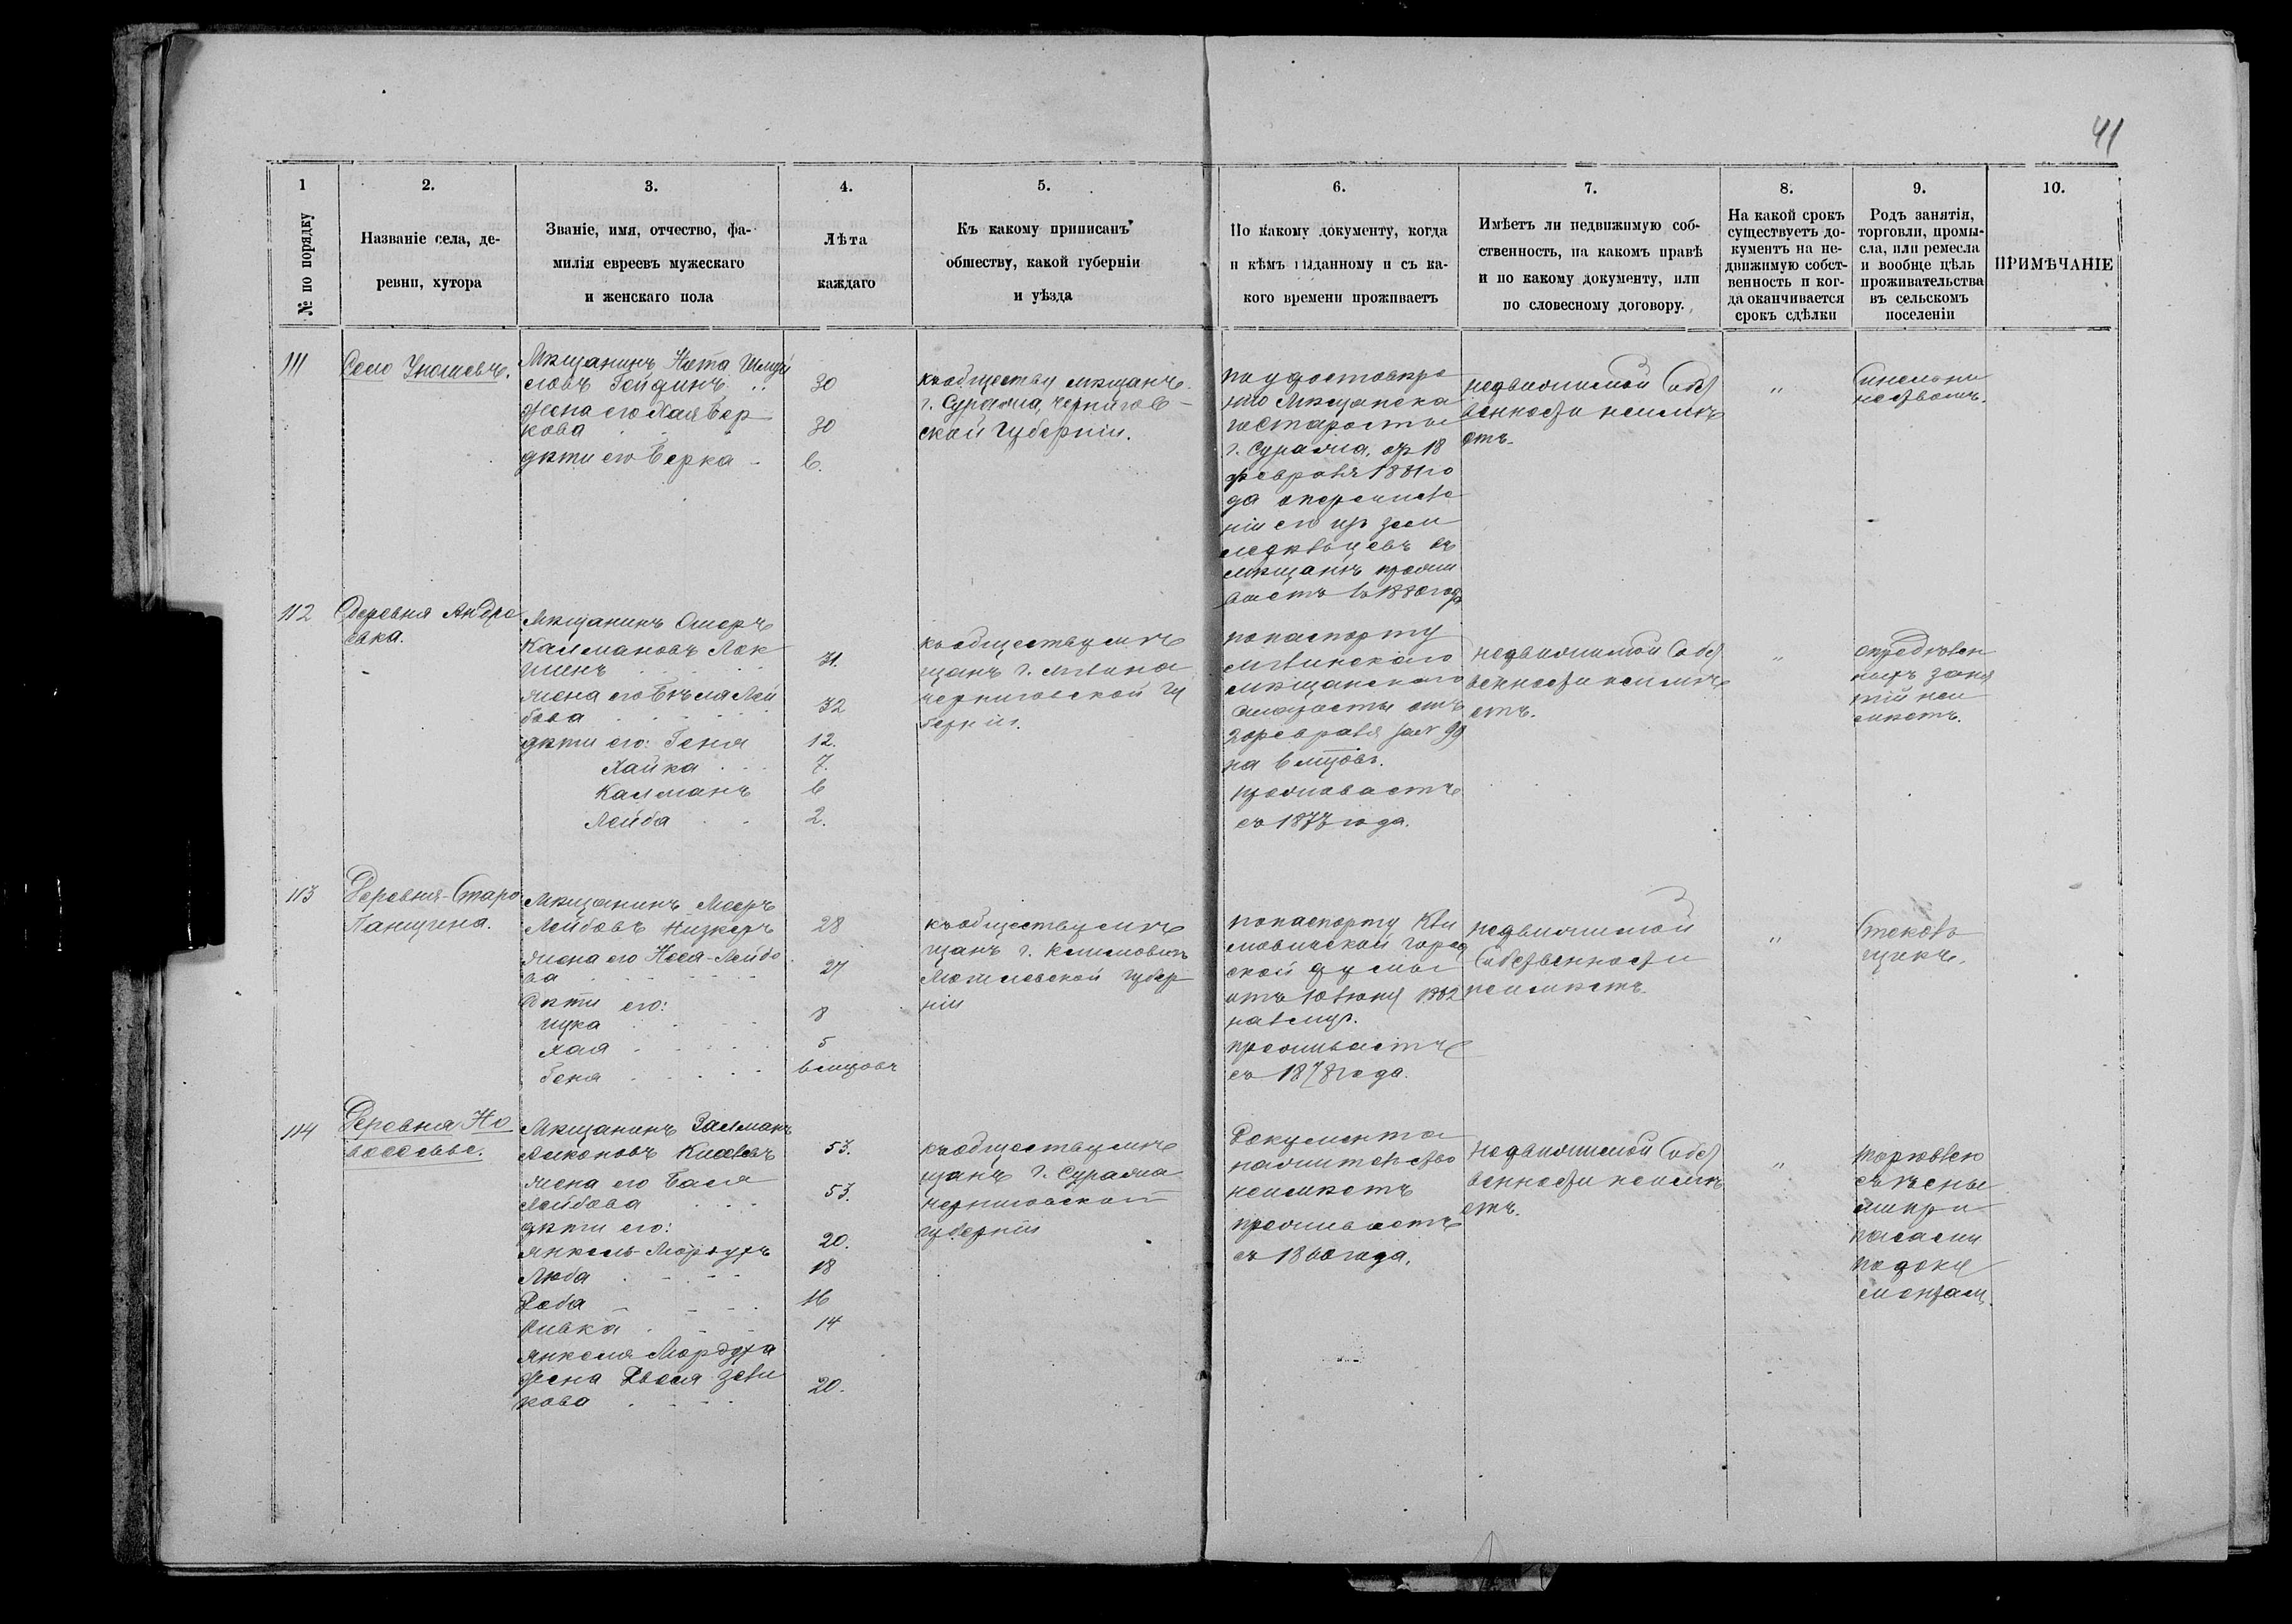 41
1
№ по порядку
2.
Названіе села, де-
ревни, хутора
3.
Званіе, имя, отчество, фа-
милія евреевъ мужескаго
и женскаго пола
4.
Лѣта
каждаго
5.
Къ какому приписанъ
обществу, какой губерніи
и уѣзда
6.
По какому документу, когда
и кѣмъ выданному и съ ка-
кого времени проживаетъ
7.
Имѣетъ ли недвижимую соб-
ственность, на какомъ правѣ
и по какому документу, или
по словесному договору.
8.
На какой срокъ
существуетъ до-
кументъ на не-
движимую собст-
венность и ког-
да оканчивается
срокъ сдѣлки
9.
Родъ занятія,
торговли, промы-
сла, или ремесла
и вообще цѣль
проживательства
въ сельскомъ
поселеніи
10.
ПРИМѢЧАНІЕ
111
Село
Мѣщанинъ Нота
30
жена его Хая Бер
кова
30
дѣти его Берка
6.
къ обществу мѣщанъ
г. Суража, Чернигов-
ской Губерніи.
по удостовѣре
нію Мѣщанска
го Старосты
г. Суража, отъ 18
февраля 1881 го
да о перечисле
ніи его изъ земл
ледѣльцевъ въ
мѣщанѣ прожи
ваетъ
недвижимой Собст
венности неимѣ
етъ.
"
112
Деревня Андре
евка.
Мѣщанинъ Омеръ
Калмановъ Лок
шинъ
31.
жена его Бейля Лей
бова
32
дѣти его: Геня
12.
Хайка
7.
Калманъ
6
Лейба
2.
къ обществу мѣ
щанъ г. Мглина
Черниговской Гу
берніи.
по паспорту
Мглинскаго
мѣщанскаго
старосты отъ
февраля за № 99
на 6 мцовъ.
проживаетъ
съ 1877 года.
недвижимой Собст
венности неимѣ
етъ.
"
опредѣлен
ныхъ заня
тій неи
мѣетъ.
113
Деревня Старо
Панщина.
Мѣщанинъ Мееръ
Лейбовъ
28
жена его Леибо
ва
27
дѣти его:
8
Хая
5
Геня
6 мцовъ
къ обществу мѣ
щанъ г. Климовичъ
Могилевской Губер
ніи
по паспорту Кли
мовичской Город
ской думы
отъ 10 Іюня 1882
на 6 мцъ.
проживаетъ
съ 1878 года.
недвижимой
Собственности
неимѣетъ.
"
Стеколь
щикъ.
114
Деревня Но
воселье.
Мѣщанинъ Залманъ
53.
жена его Бася
Лейбова
53.
дѣти его:
Янкель-Мордухъ
20.
Люба
18
Доба
16
Ривка
14
Янкеля Мордуха
жена Двося
20.
къ обществу мѣ
щанъ г. Суража
Черниговской
губерніи
Документа
на жительство
неимѣетъ
проживаетъ
съ 1860 года.
недвижимой Собст
венности неимѣ
етъ.
"
торговлею
съѣсны
ми при
пасами
по доку
ментам.